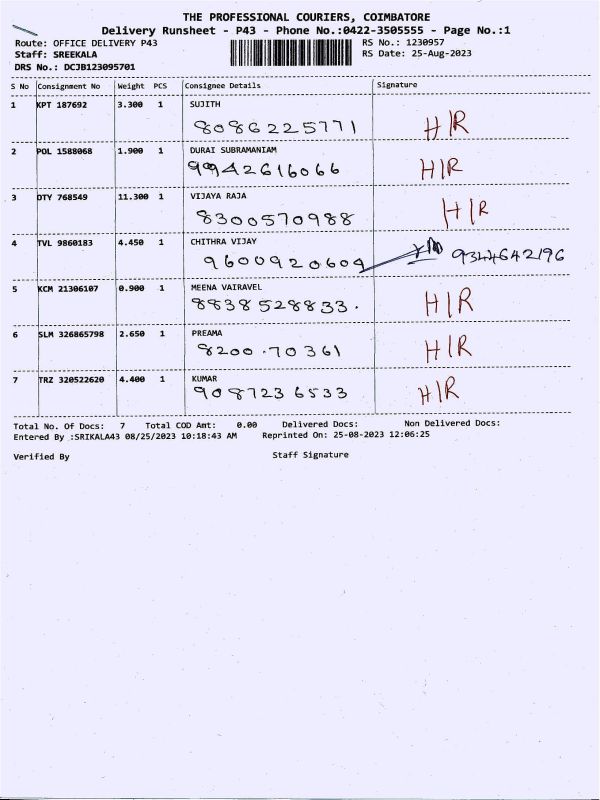 THE PROFESSIONAL COURIERS, COIMBATORE
Delivery Runsheet - P43 - Phone No.:0422-3505555 - Page No.:1
Route: OFFICE DELIVERY P43 RS No.: 1230957
Staff: SREEKALA RS Date: 25-Aug-2023
DRS No.: DCJB123095701
S No Consignment No Weight PCS Consignee Details Signature
1 KPT 187692 3.300 1 SUJITH
8086225771 H/R
2 POL 1588068 1.900 1 DURAI SUBRAMANIAM
9942616066 H/R
3 DTY 768549 11.300 1 VIJAYA RAJA
8300570988 H/R
4 TVL 9860183 4.450 1 CHITHRA VIJAY
9600920609 9344642196
5 KCM 21306107 0.900 1 MEENA VAIRAVEL
8838528833. H/R
6 SLM 326865798 2.650 1 PREAMA
8200.70361 H/R
7 TRZ 320522620 4.400 1 KUMAR
9087236533 H/R
Total No. Of Docs: 7 Total COD Amt: 0.00 Delivered Docs: Non Delivered Docs:
Entered By :SRIKALA43 08/25/2023 10:18:43 AM Reprinted On: 25-08-2023 12:06:25
Verified By Staff Signature